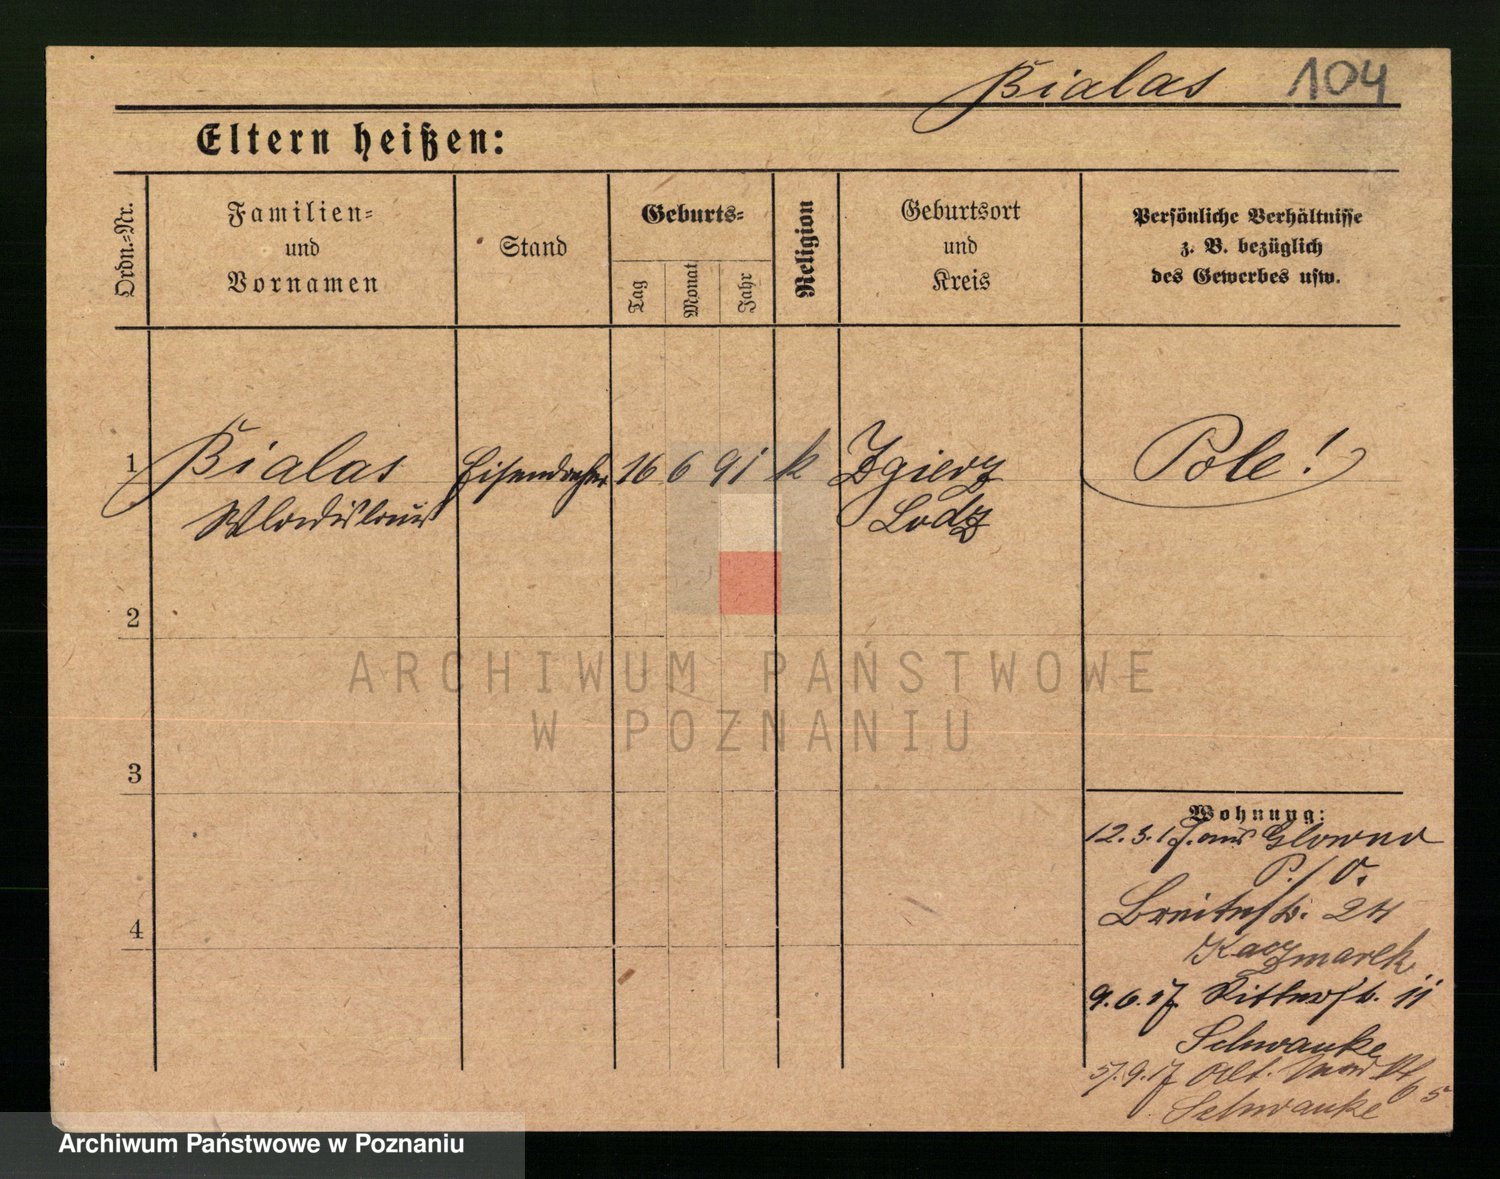 Bialas 104
Eltern heißen:
Ordn.-Nr.
Familien-
und
Vornamen
Stand
Geburts-
Tag
Monat
Jahr
Religion
Geburtsort
und
Kreis
Persönliche Verhältnisse
z. B. bezüglich
des Gewerbes usw.
1 Bialas Eisendreher 16 6 91 k Zgierz Pole!
Wladislaus Lodz
2
3
4
Wohnung:
12.3.17. aus Glowno
P./O.
Breitestr. 24
Kaczmarek
9.6.17 Ritterstr. 11
Schwanke
5.9.17 Alt. Markt 65
Schwanke
ARCHIWUM PAŃSTWOWE
W POZNANIU
Archiwum Państwowe w Poznaniu